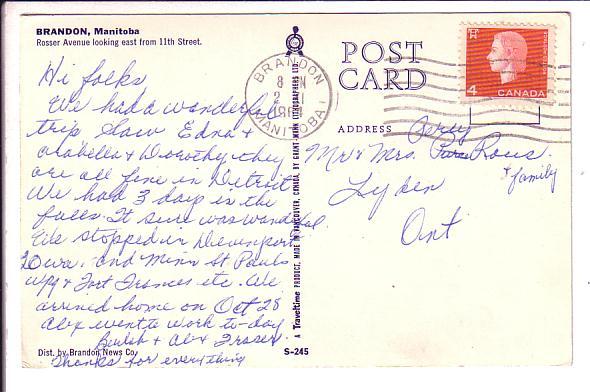 BRANDON, Manitoba
Rosser Avenue looking east from 11th Street.
Hi folks
We had a wonderful
trip Saw Edna +
Arabella & Dorothy, they
are all fine in Detroit
We had 3 days in the
falls It sure was wonderful.
We stopped in Davenport
Iowa. and Minn St Pauls
Wpg & Fort Frances etc. We
arrived home on Oct 28
Alex went to work to-day
Beulah & Alex Fraser.
Thanks for everything
Dist. by Brandon News Co.
S-245
A Traveltime PRODUCT, MADE IN VANCOUVER, CANADA, BY GRANT-MANN LITHOGRAPHERS LTD.
BRANDON
MANITOBA
POST
CARD
4 CANADA
ADDRESS
Percy
Mr & Mrs. Rous.
& family
Lyden
Ont